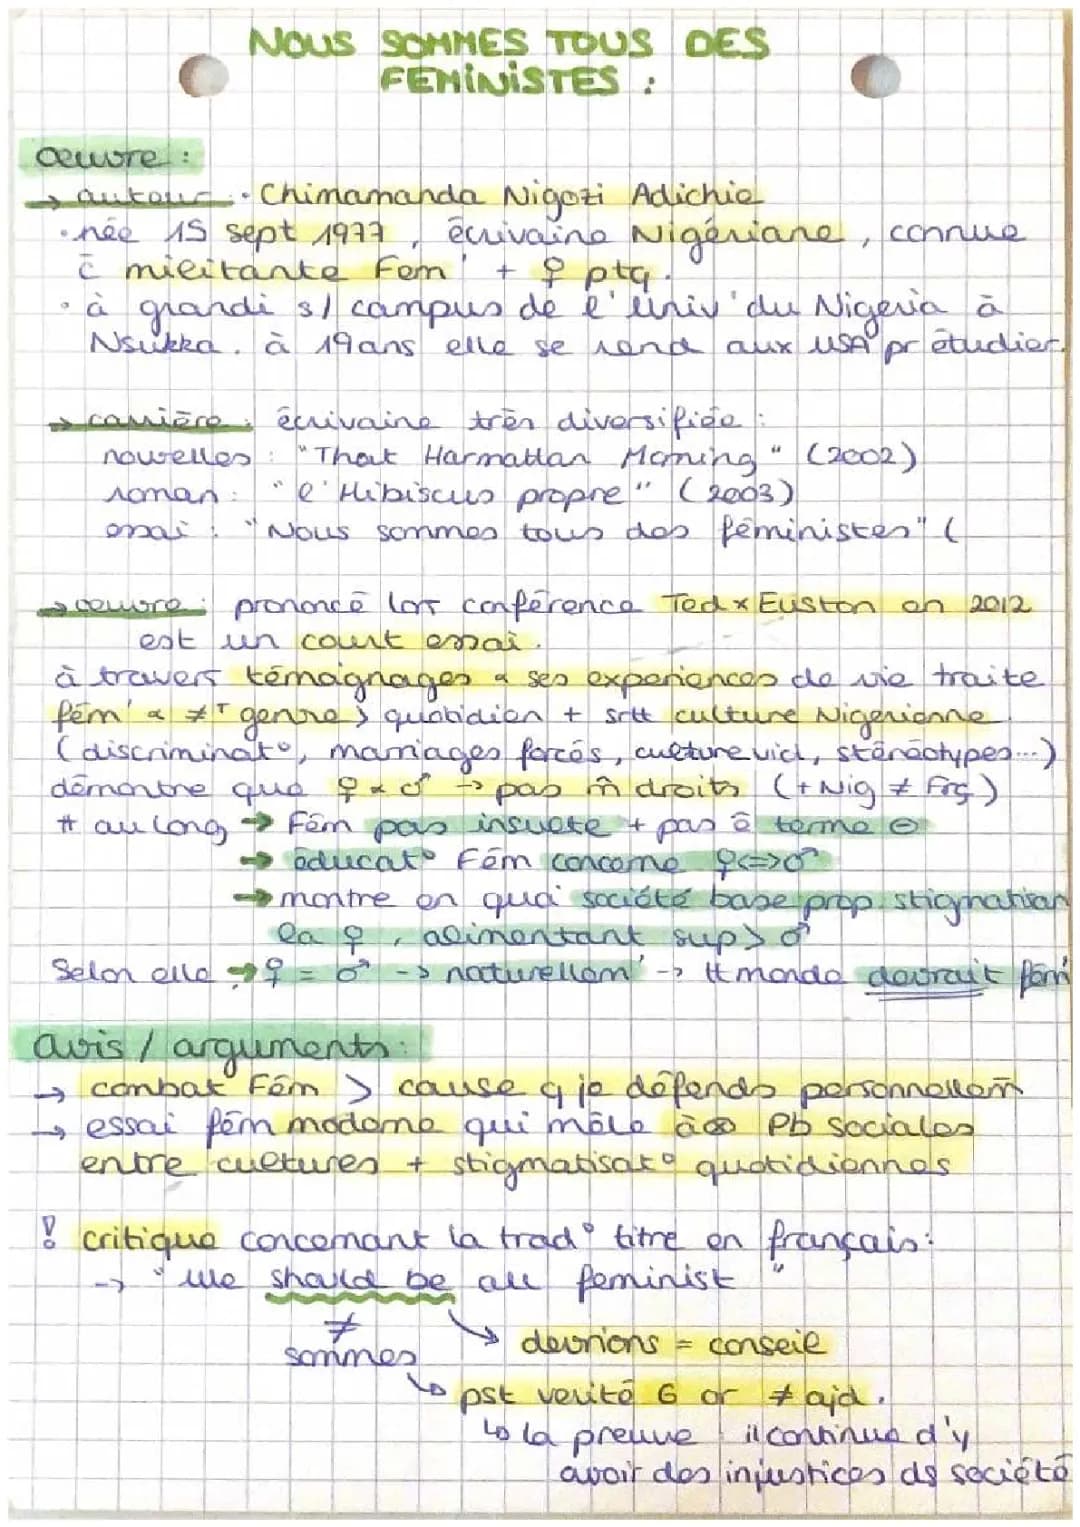 NOUS SOMMES TOUS DES
FEMiNiSTES :
œuvre :
→ auteur : • Chimamanda Nigozi Adichie
• née 15 sept 1977, écrivaine Nigériane, connue
c̄ militante Fem' + ♀ ptq.
• à grandi s/ campus de l'univ' du Nigeria à
Nsukka. à 19 ans elle se rend aux USA pr étudier.
→ carrière : écrivaine très diversifiée :
nouvelles : "That Harmattan Morning" (2002)
roman : "l'Hibiscus propre" (2003)
essai : "Nous sommes tous des féministes" (
→ oeuvre : prononcé lors conférence Ted x Euston en 2012
est un court essai.
à travers témoignages & ses experiences de vie traite
fém' & ≠T genre > quotidien + srtt culture Nigerienne
(discriminat°, marriages forcés, culture viol, stéréotypes...)
démontre que ♀ & ♂ → pas m̂ droits (+ Nig ≠ Frç)
tt au long → Fém pas insulte + pas ê terme ⊖
→ éducat° Fém concerne ♀<=>♂
→ montre en quoi société base prop. stigmatisan
la ♀, alimentant sup> ♂
Selon elle → ♀ = ♂ -> naturellem' -> tt monde devrait fém'
avis / arguments :
→ combat Fém > cause q je défends personnellem̄
→ essai fém moderne qui mêle à∞ Pb sociales
entre cultures + stigmatisat° quotidiennes
! critique concernant la trad° titre en français :
-> "We should be all feminist"
≠
sommes
→ devrions = conseil
↳ pst verité G or ≠ ajd.
↳ la preuve il continue d'y
avoir des injustices ds société